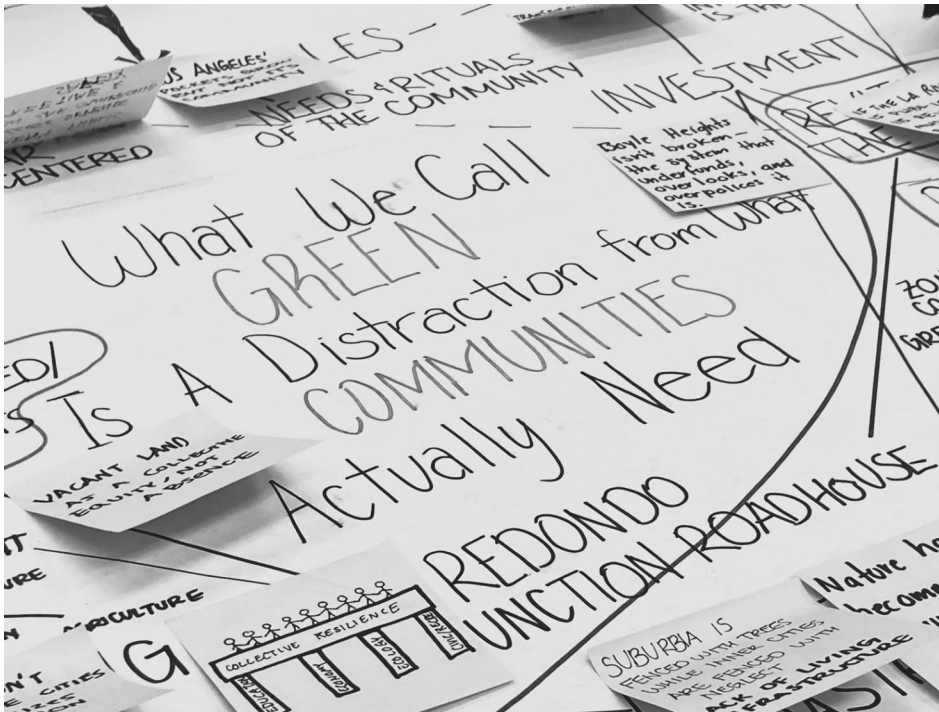 LES
NEEDS & RITUALS
OF THE COMMUNITY
INVESTMENT
IS THE
US ANGELES'
CENTERED
Boyle Heights
isn't broken—
the system that
underfunds,
overlooks, and
overpolices it
is.
RE
THE
What We Call
GREEN
Is A Distraction from What
COMMUNITIES
Actually Need
ED/
VACANT LAND
AS A COLLECTIVE
EQUITY, NOT
ABSENCE
ZON
CO
GRE
REDONDO
UNCTION ROADHOUSE
URE
AGRICULTURE
G
COLLECTIVE RESILIENCE
EDUCATION
ECONOMY
ECOLOGY
CIVIC/RECRE
N'T
CITIES
Nature ha
becom
SUBURBIA IS
FENCED WITH TREES
WHILE INNER CITIES
ARE FENCED WITH
NEGLECT
ACK OF LIVING
FRASTRUCTURE